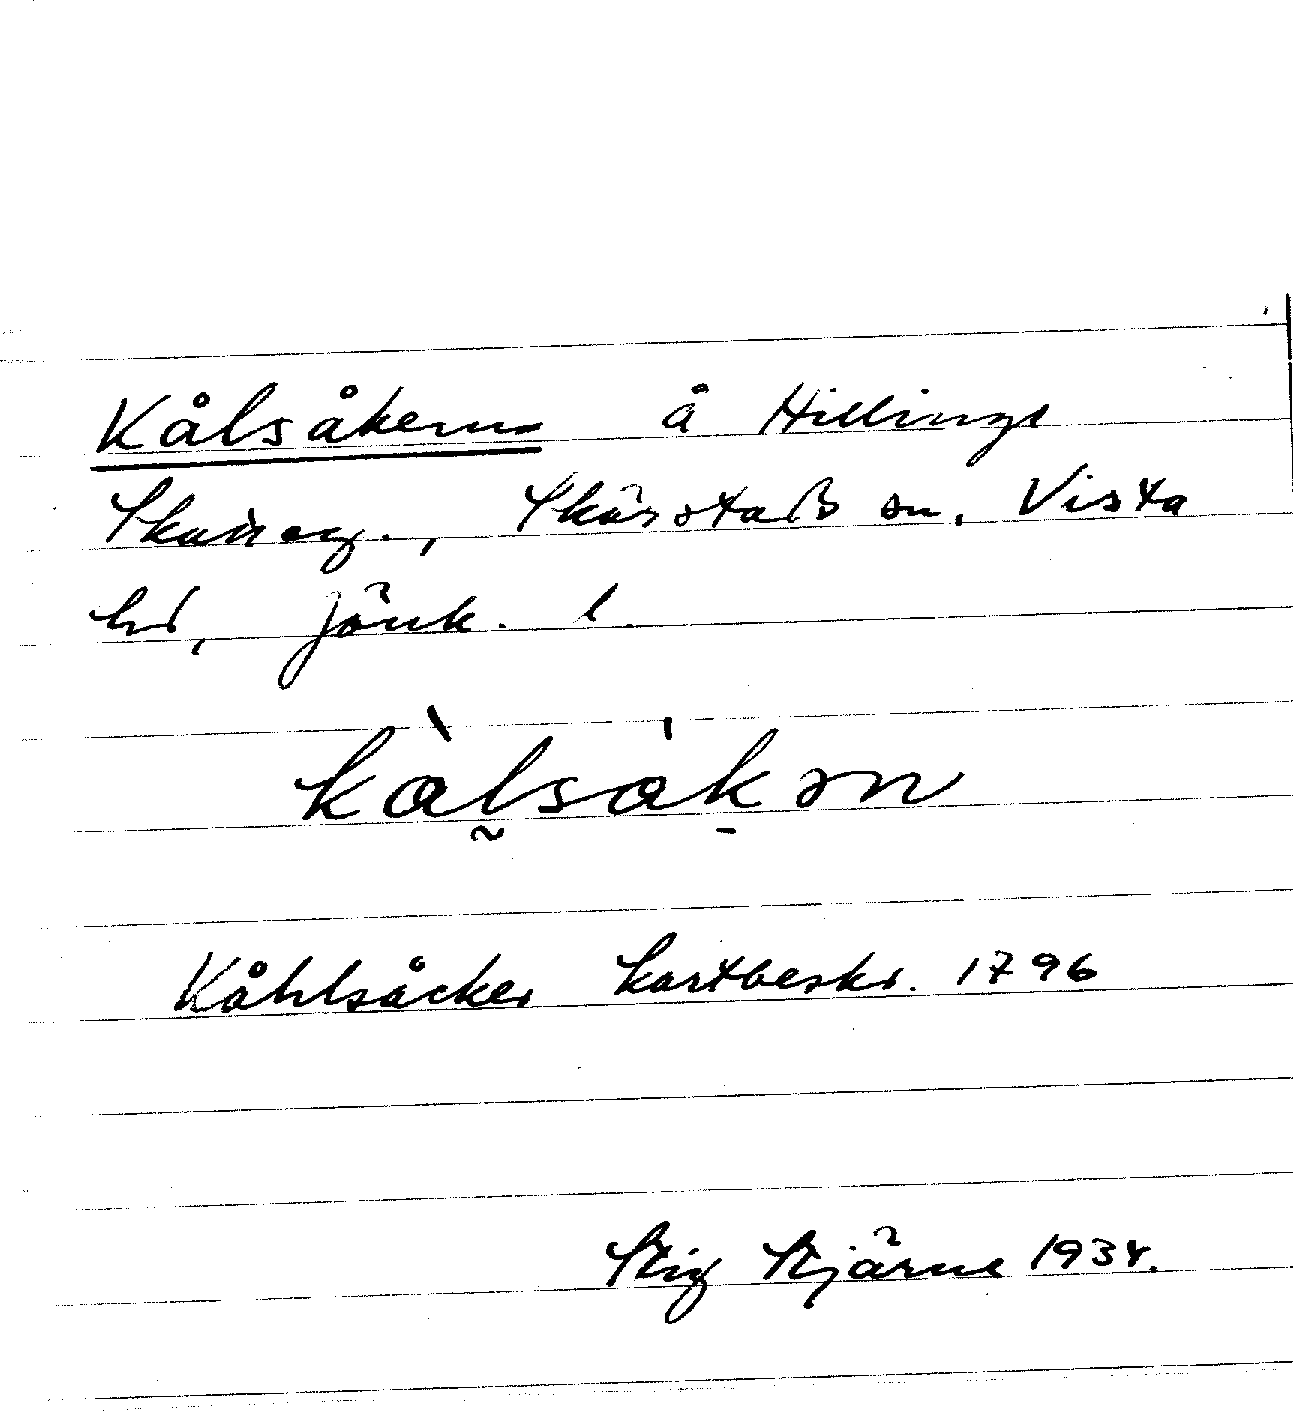 Kålsåkerns å Hillinge
Skatteg., Skärstads sn, Vista
hd, Jönk. l.
kålsåkən
Kåhlsåcker kartbeskr. 1796
Stig Stjärne 1934.